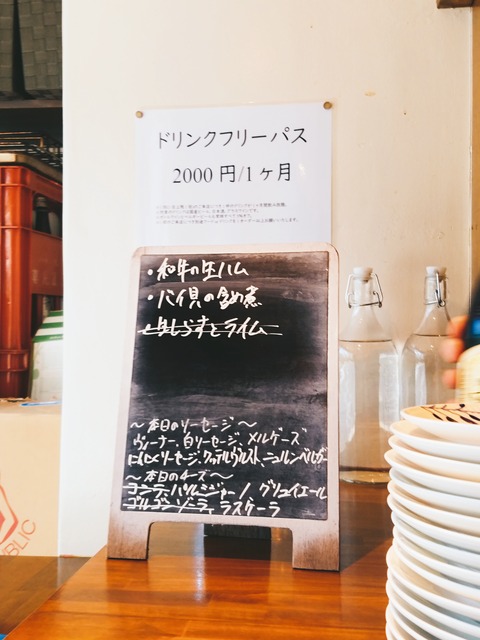 ドリンクフリーパス
2000 円/1 ヶ月
・和牛の生ハム
・バイ貝の含め煮
生しらすとライム
〜本日のソーセージ〜
ウィンナー、白ソーセージ、メルゲーズ
にんにくソーセージ、クァテルヴルスト、ニュルンベルガー
〜本日のチーズ〜
コンテ、パルミジャーノ、グリュイエール
ゴルゴンゾーラ、ラスケーラ
PUBLIC